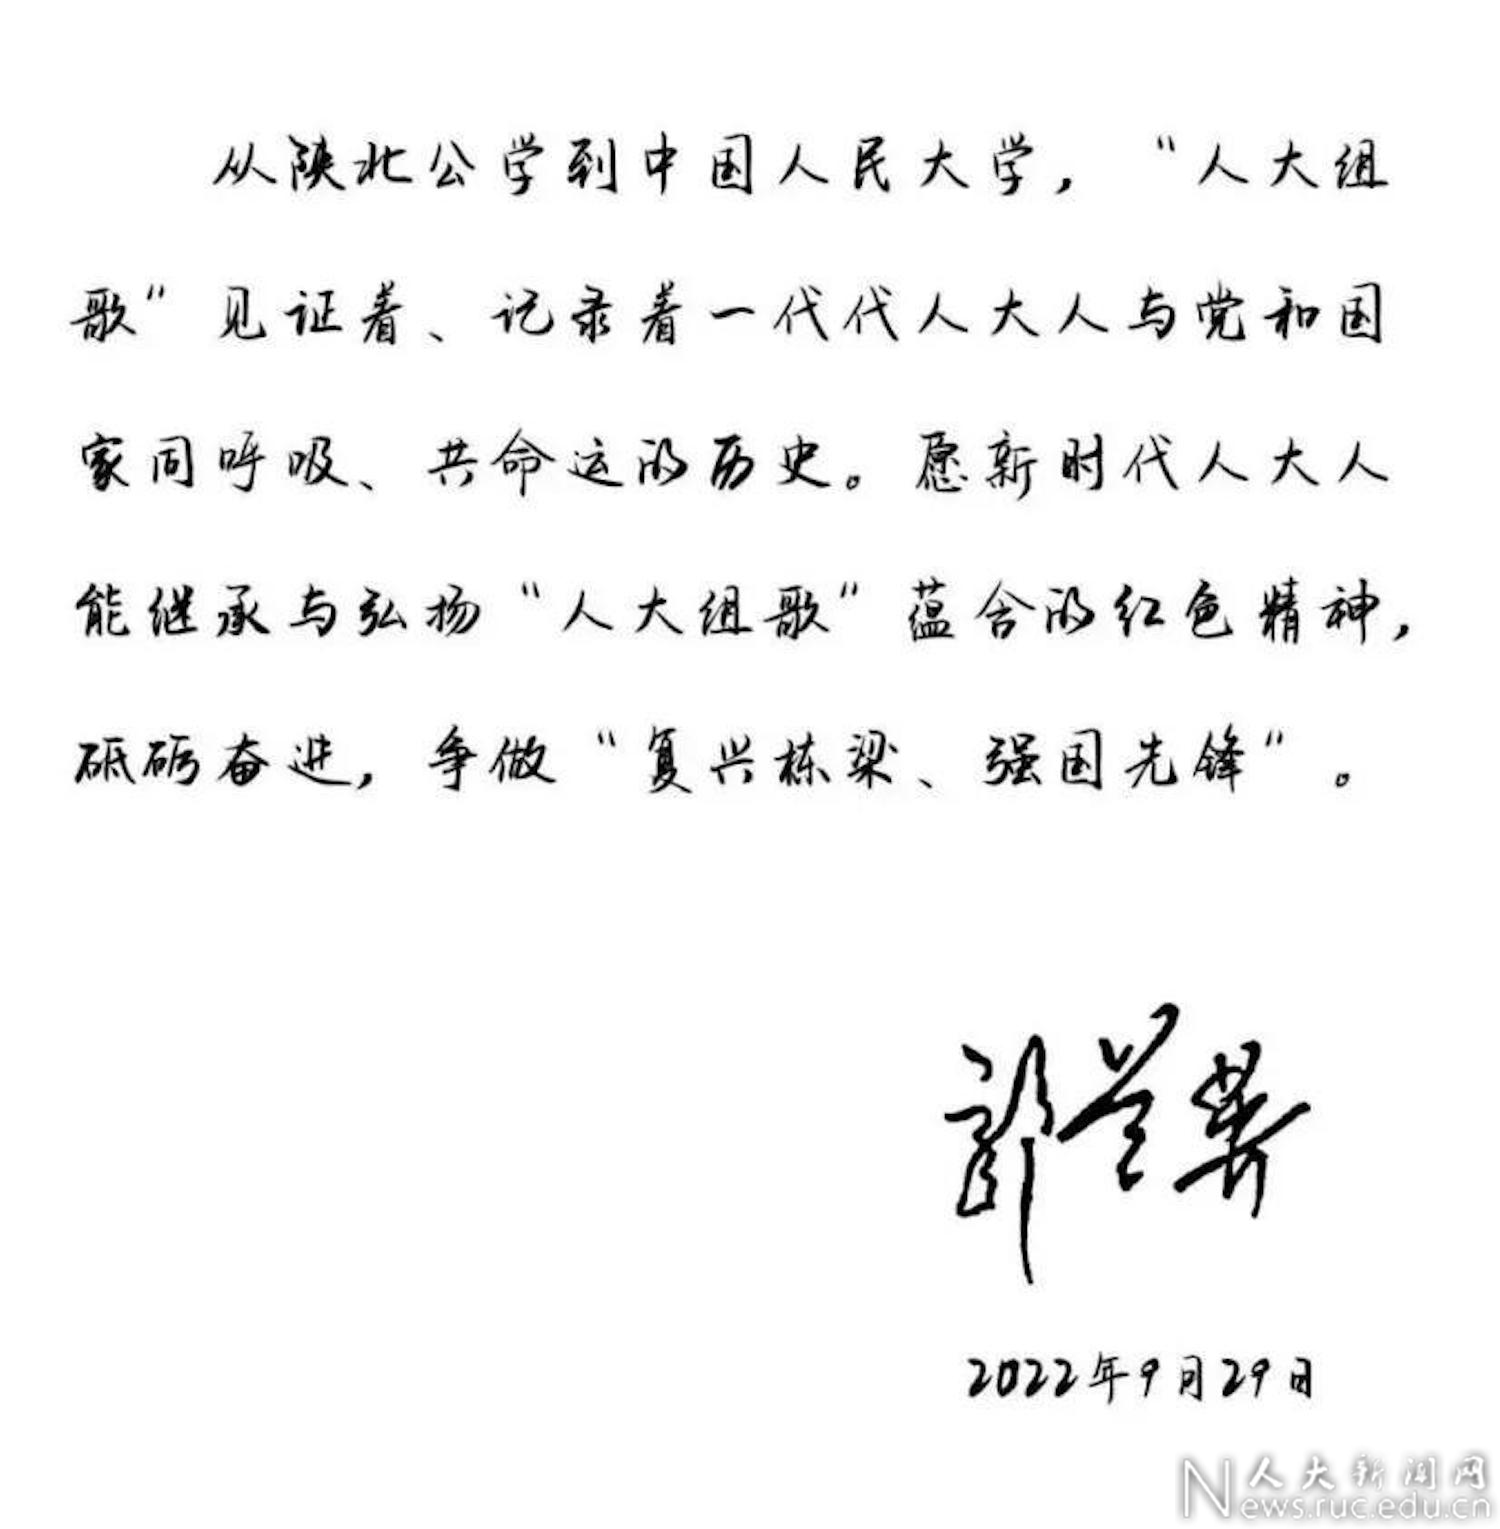 从陕北公学到中国人民大学，“人大组
歌”见证着、记录着一代代人大人与党和国
家同呼吸、共命运的历史。愿新时代人大人
能继承与弘扬“人大组歌”蕴含的红色精神，
砥砺奋进，争做“复兴栋梁、强国先锋”。
2022年9月29日
人大新闻网
News.ruc.edu.cn